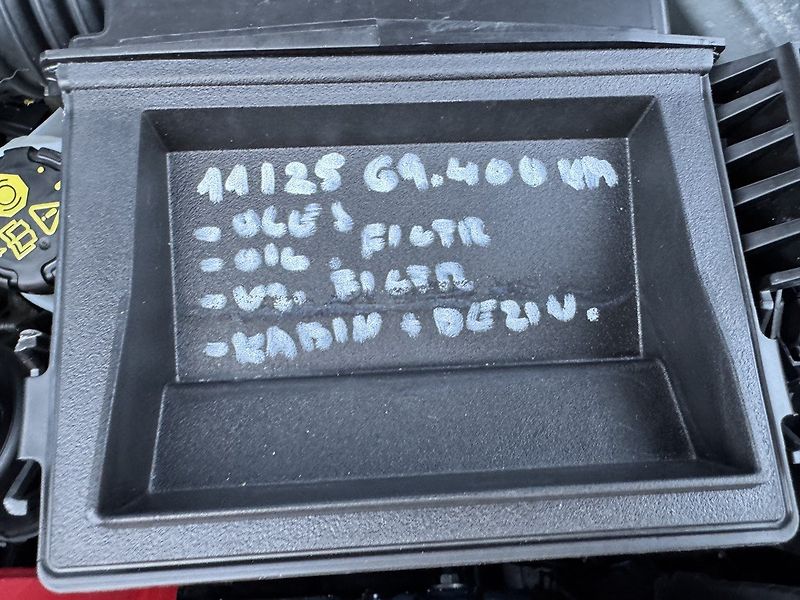 11/25 69.400 KM
- OLEJ
- OIL. FILTR
- VZ. FILTR
- KABIN + DEZIN.